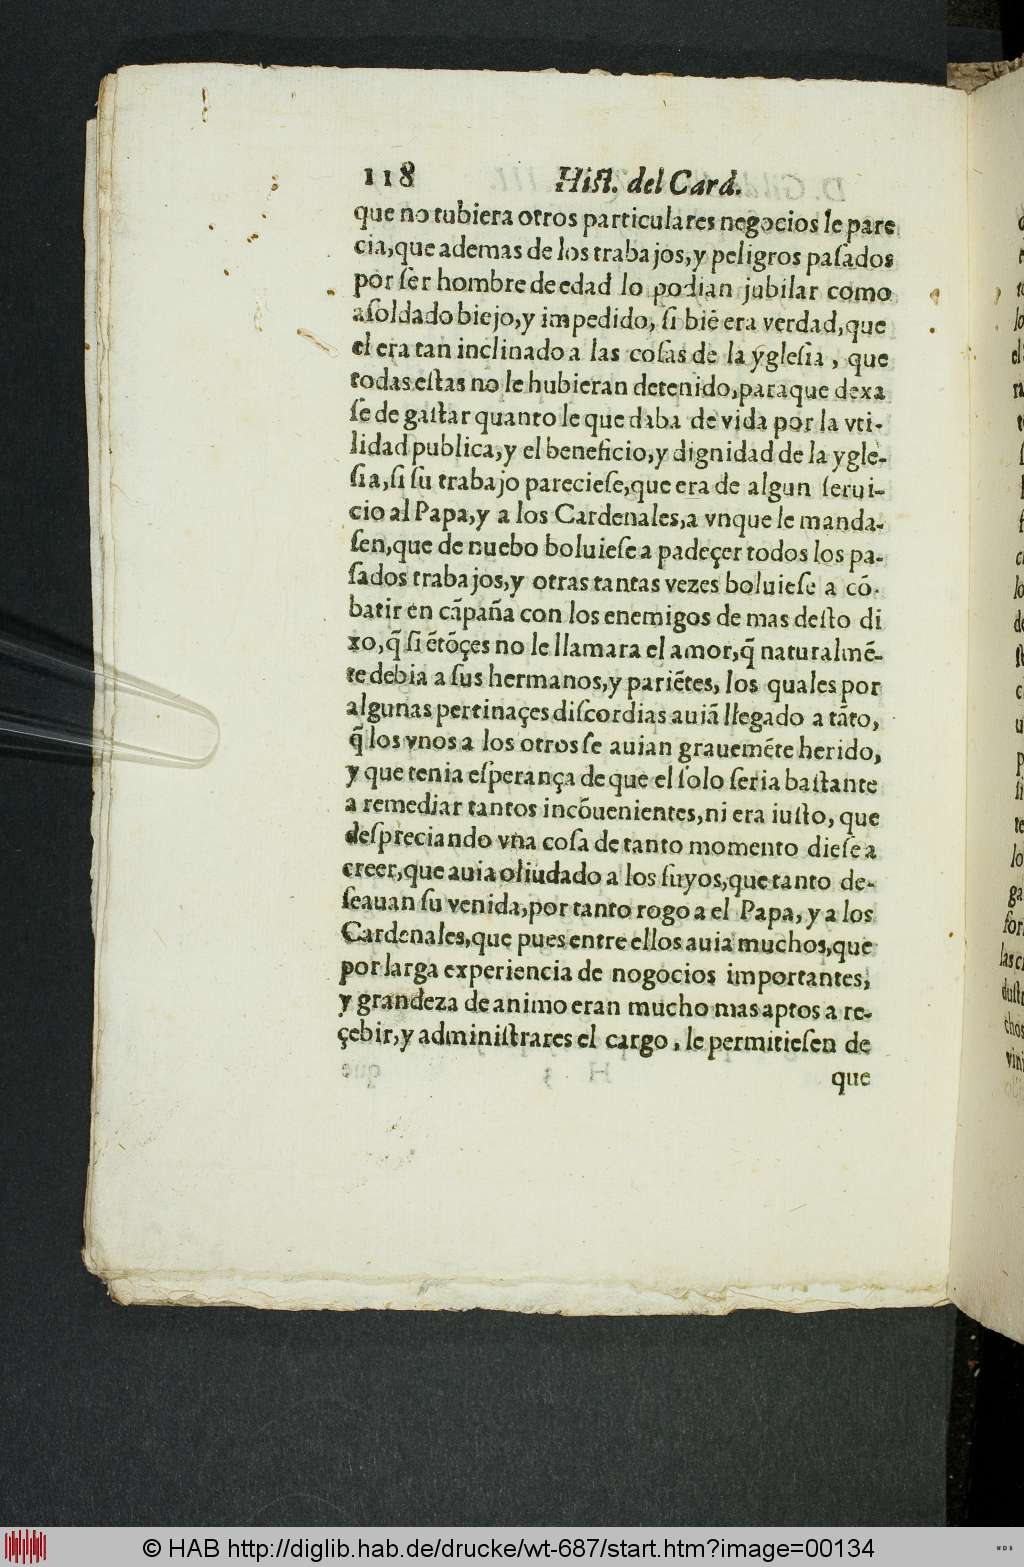 118 Hiſt. del Card.
que no tubiera otros particulares negocios le pare
cia, que ademas de los trabajos, y peligros paſados
por ſer hombre de edad lo podian jubilar como
a ſoldado biejo, y impedido, ſi biē era verdad, que
el era tan inclinado a las coſas de la ygleſia, que
todas eſtas no le hubieran detenido, para que dexa
ſe de gaſtar quanto le que daba de vida por la vti-
lidad publica, y el beneficio, y dignidad de la ygle-
ſia, ſi ſu trabajo parecieſe, que era de algun ſerui-
cio al Papa, y a los Cardenales, a vnque le manda-
ſen, que de nuebo boluieſe a padeçer todos los pa-
ſados trabajos, y otras tantas vezes boluieſe a cō-
batir en cãpaña con los enemigos de mas deſto di
xo, q̃ ſi ētōçes no le llamara el amor, q̃ naturalmē-
te debia a ſus hermanos, y pariētes, los quales por
algunas pertinaçes diſcordias auiã llegado a tãto,
q̃ los vnos a los otros ſe auian grauemēte herido,
y que tenia eſperança de que el ſolo ſeria baſtante
a remediar tantos incōuenientes, ni era iuſto, que
deſpreciando vna coſa de tanto momento dieſe a
creer, que auia oliudado a los ſuyos, que tanto de-
ſeauan ſu venida, por tanto rogo a el Papa, y a los
Cardenales, que pues entre ellos auia muchos, que
por larga experiencia de nogocios importantes,
y grandeza de animo eran mucho mas aptos a re-
çebir, y adminiſtrares el cargo, le permitieſen de
que
© HAB http://diglib.hab.de/drucke/wt-687/start.htm?image=00134